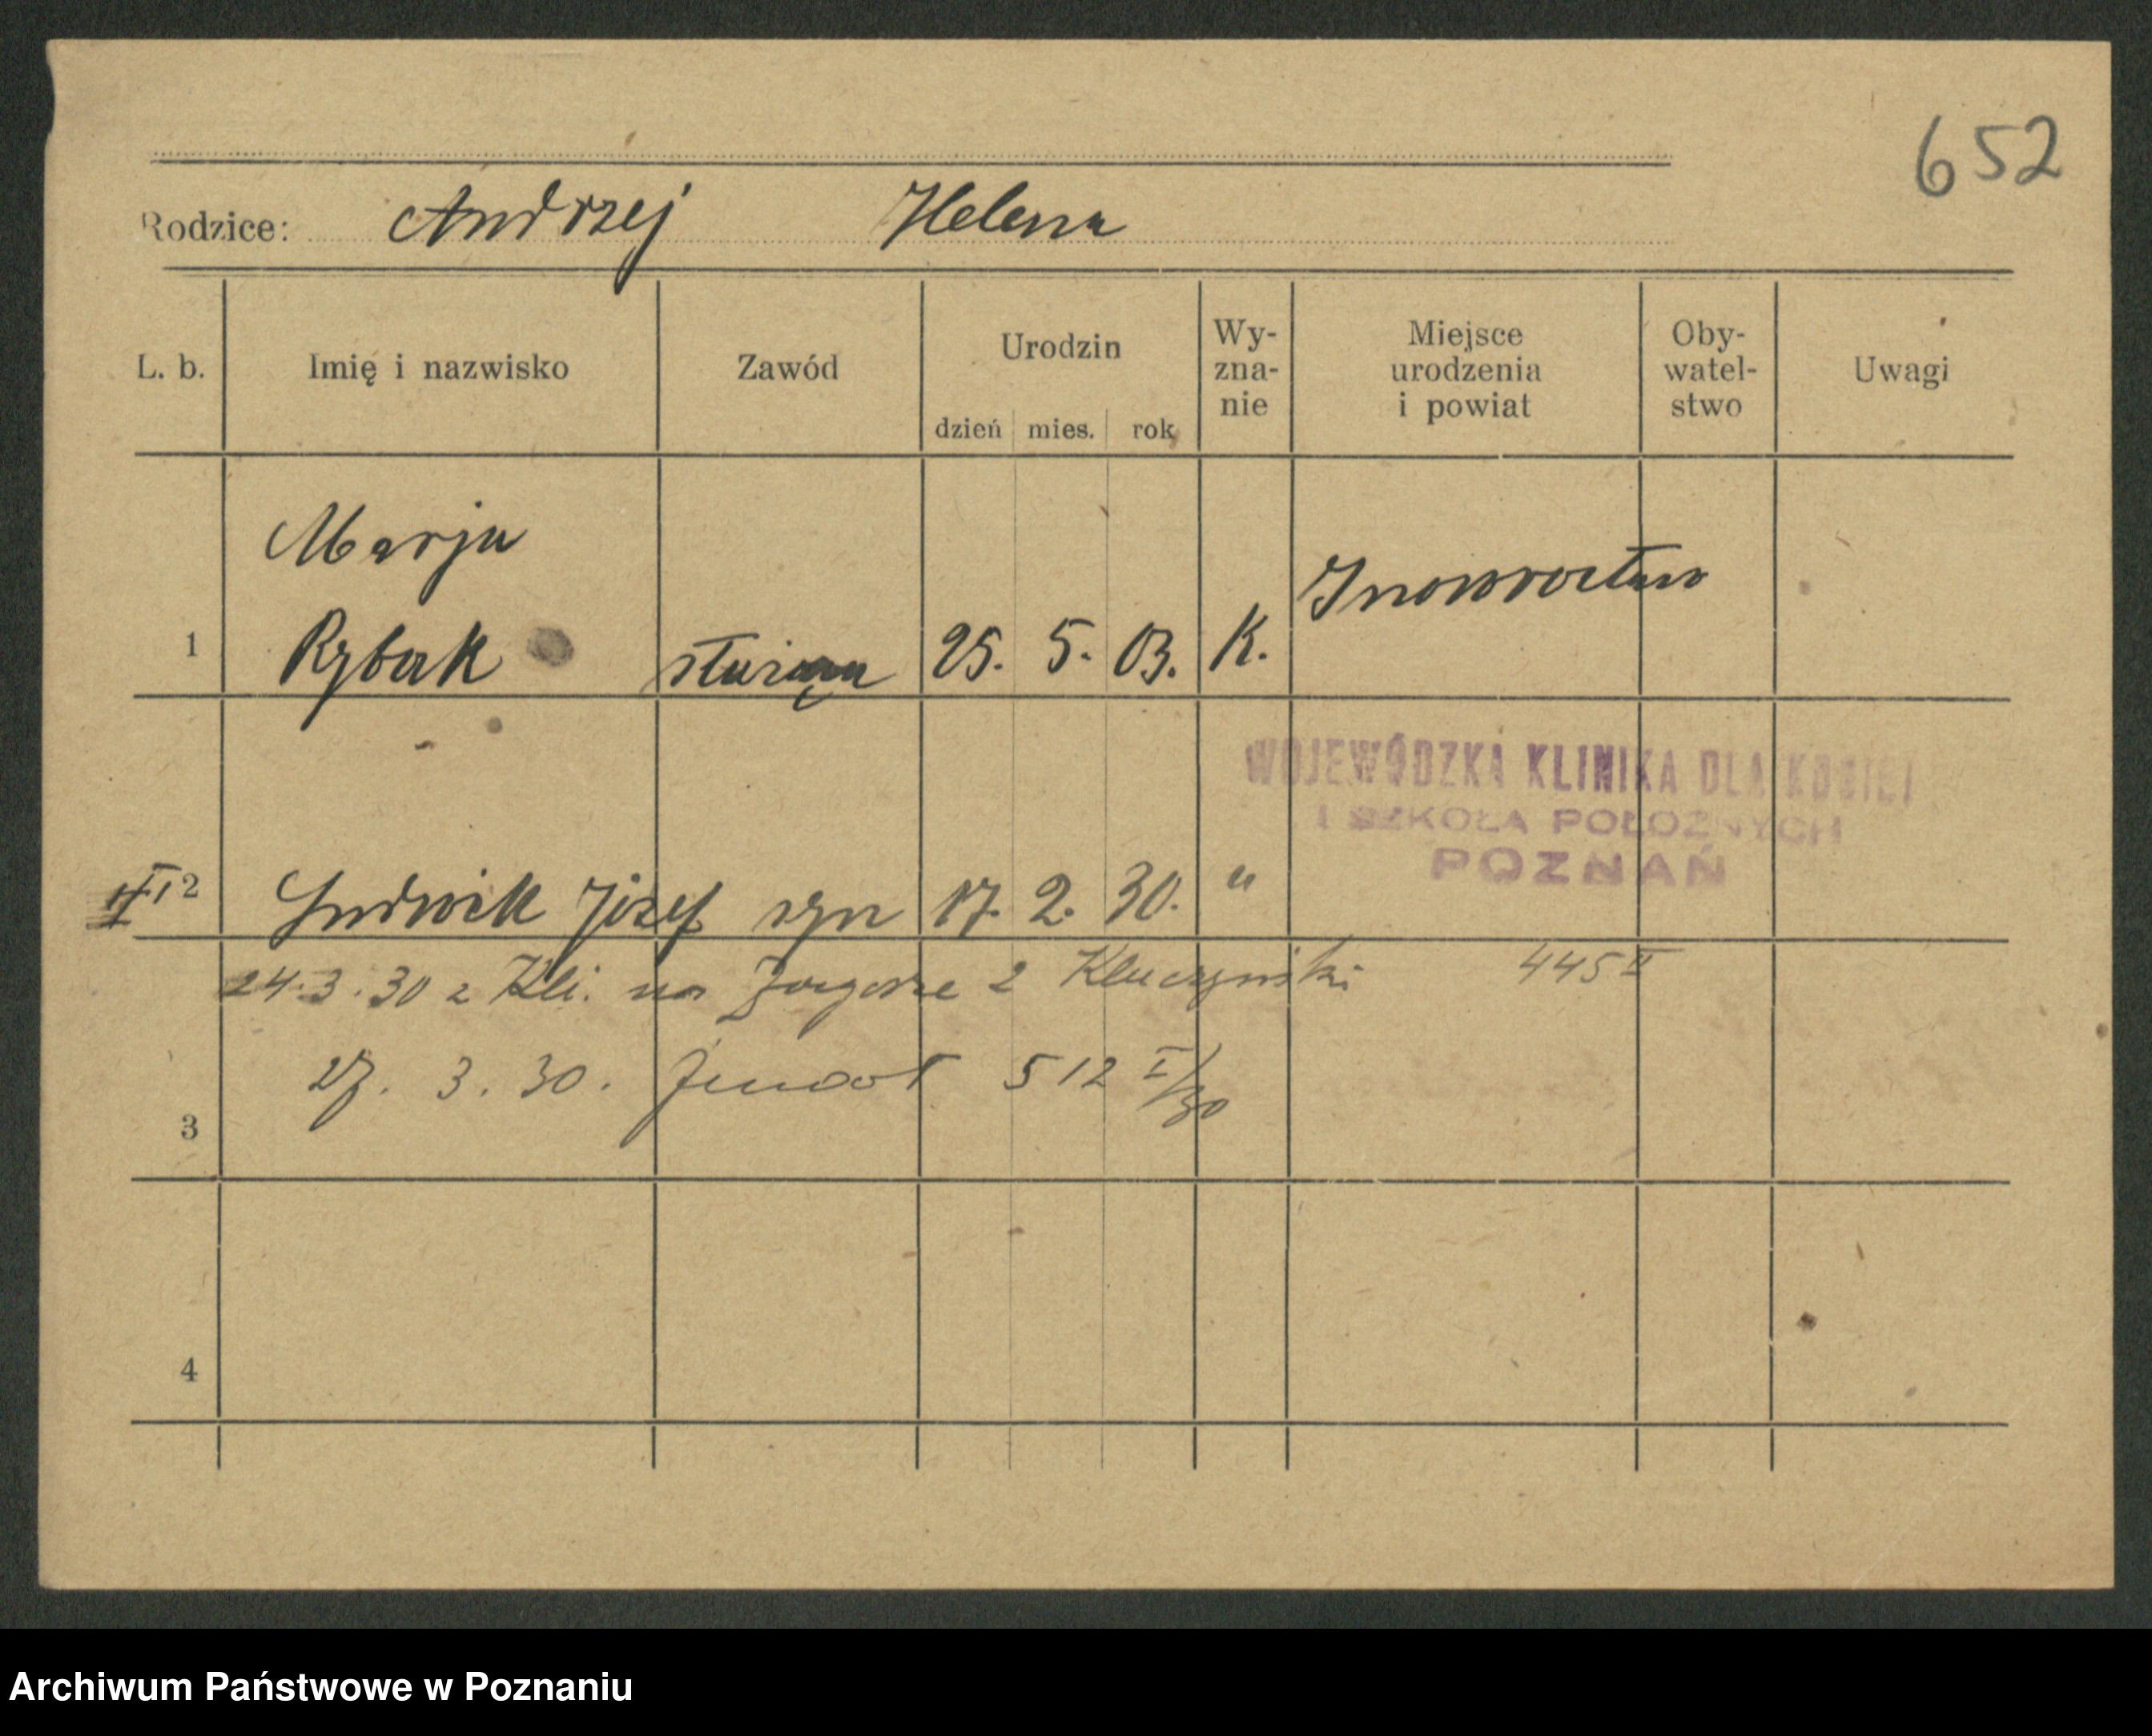 652
Rodzice: Andrzej Helena
L. b. Imię i nazwisko Zawód Urodzin dzień mies. rok Wy-zna-nie Miejsce urodzenia i powiat Oby-watel-stwo Uwagi
Marja
Inowrocław
1 Rybak służąca 25. 5. 03. K.
WOJEWÓDZKA KLINIKA DLA KOBIET
I SZKOŁA POŁOŻNYCH
POZNAŃ
2 Ludwik Józef syn 17. 2. 30. "
24.3.30 z Kli. na Zagórze 2 Kluczyński 445 II
27. 3. 30. 512 I/30
3
4
Archiwum Państwowe w Poznaniu